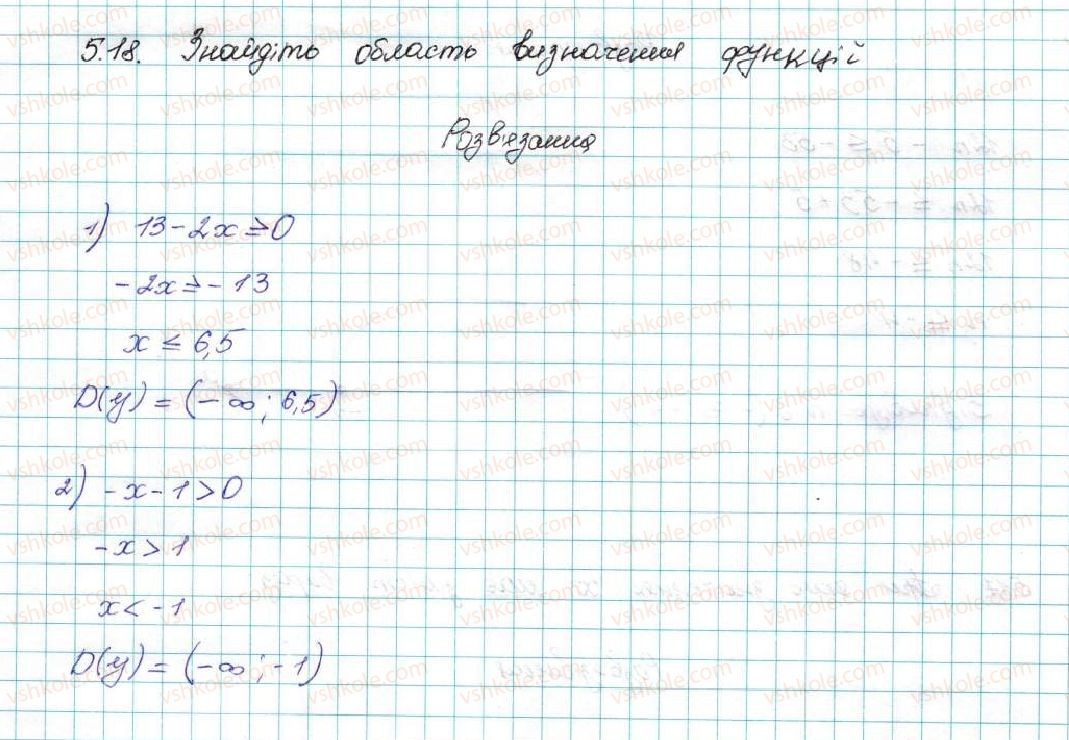 5.18. Знайдіть область визначення функцій
Розв'язання
1) 13 - 2x ≥ 0
-2x ≥ -13
x ≤ 6,5
D(y) = (-∞; 6,5)
2) -x - 1 > 0
-x > 1
x < -1
D(y) = (-∞; -1)
vshkole.com